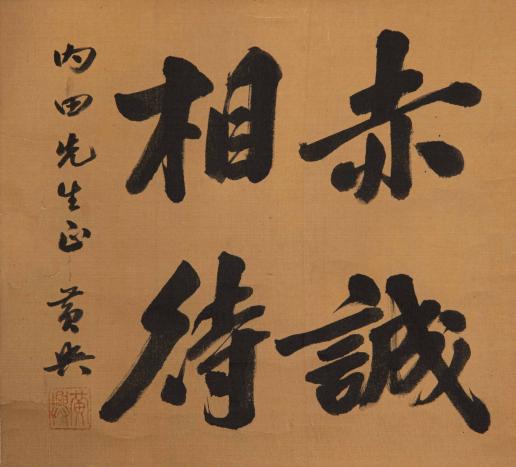 赤誠
相待
内田先生正 黄興
黄興